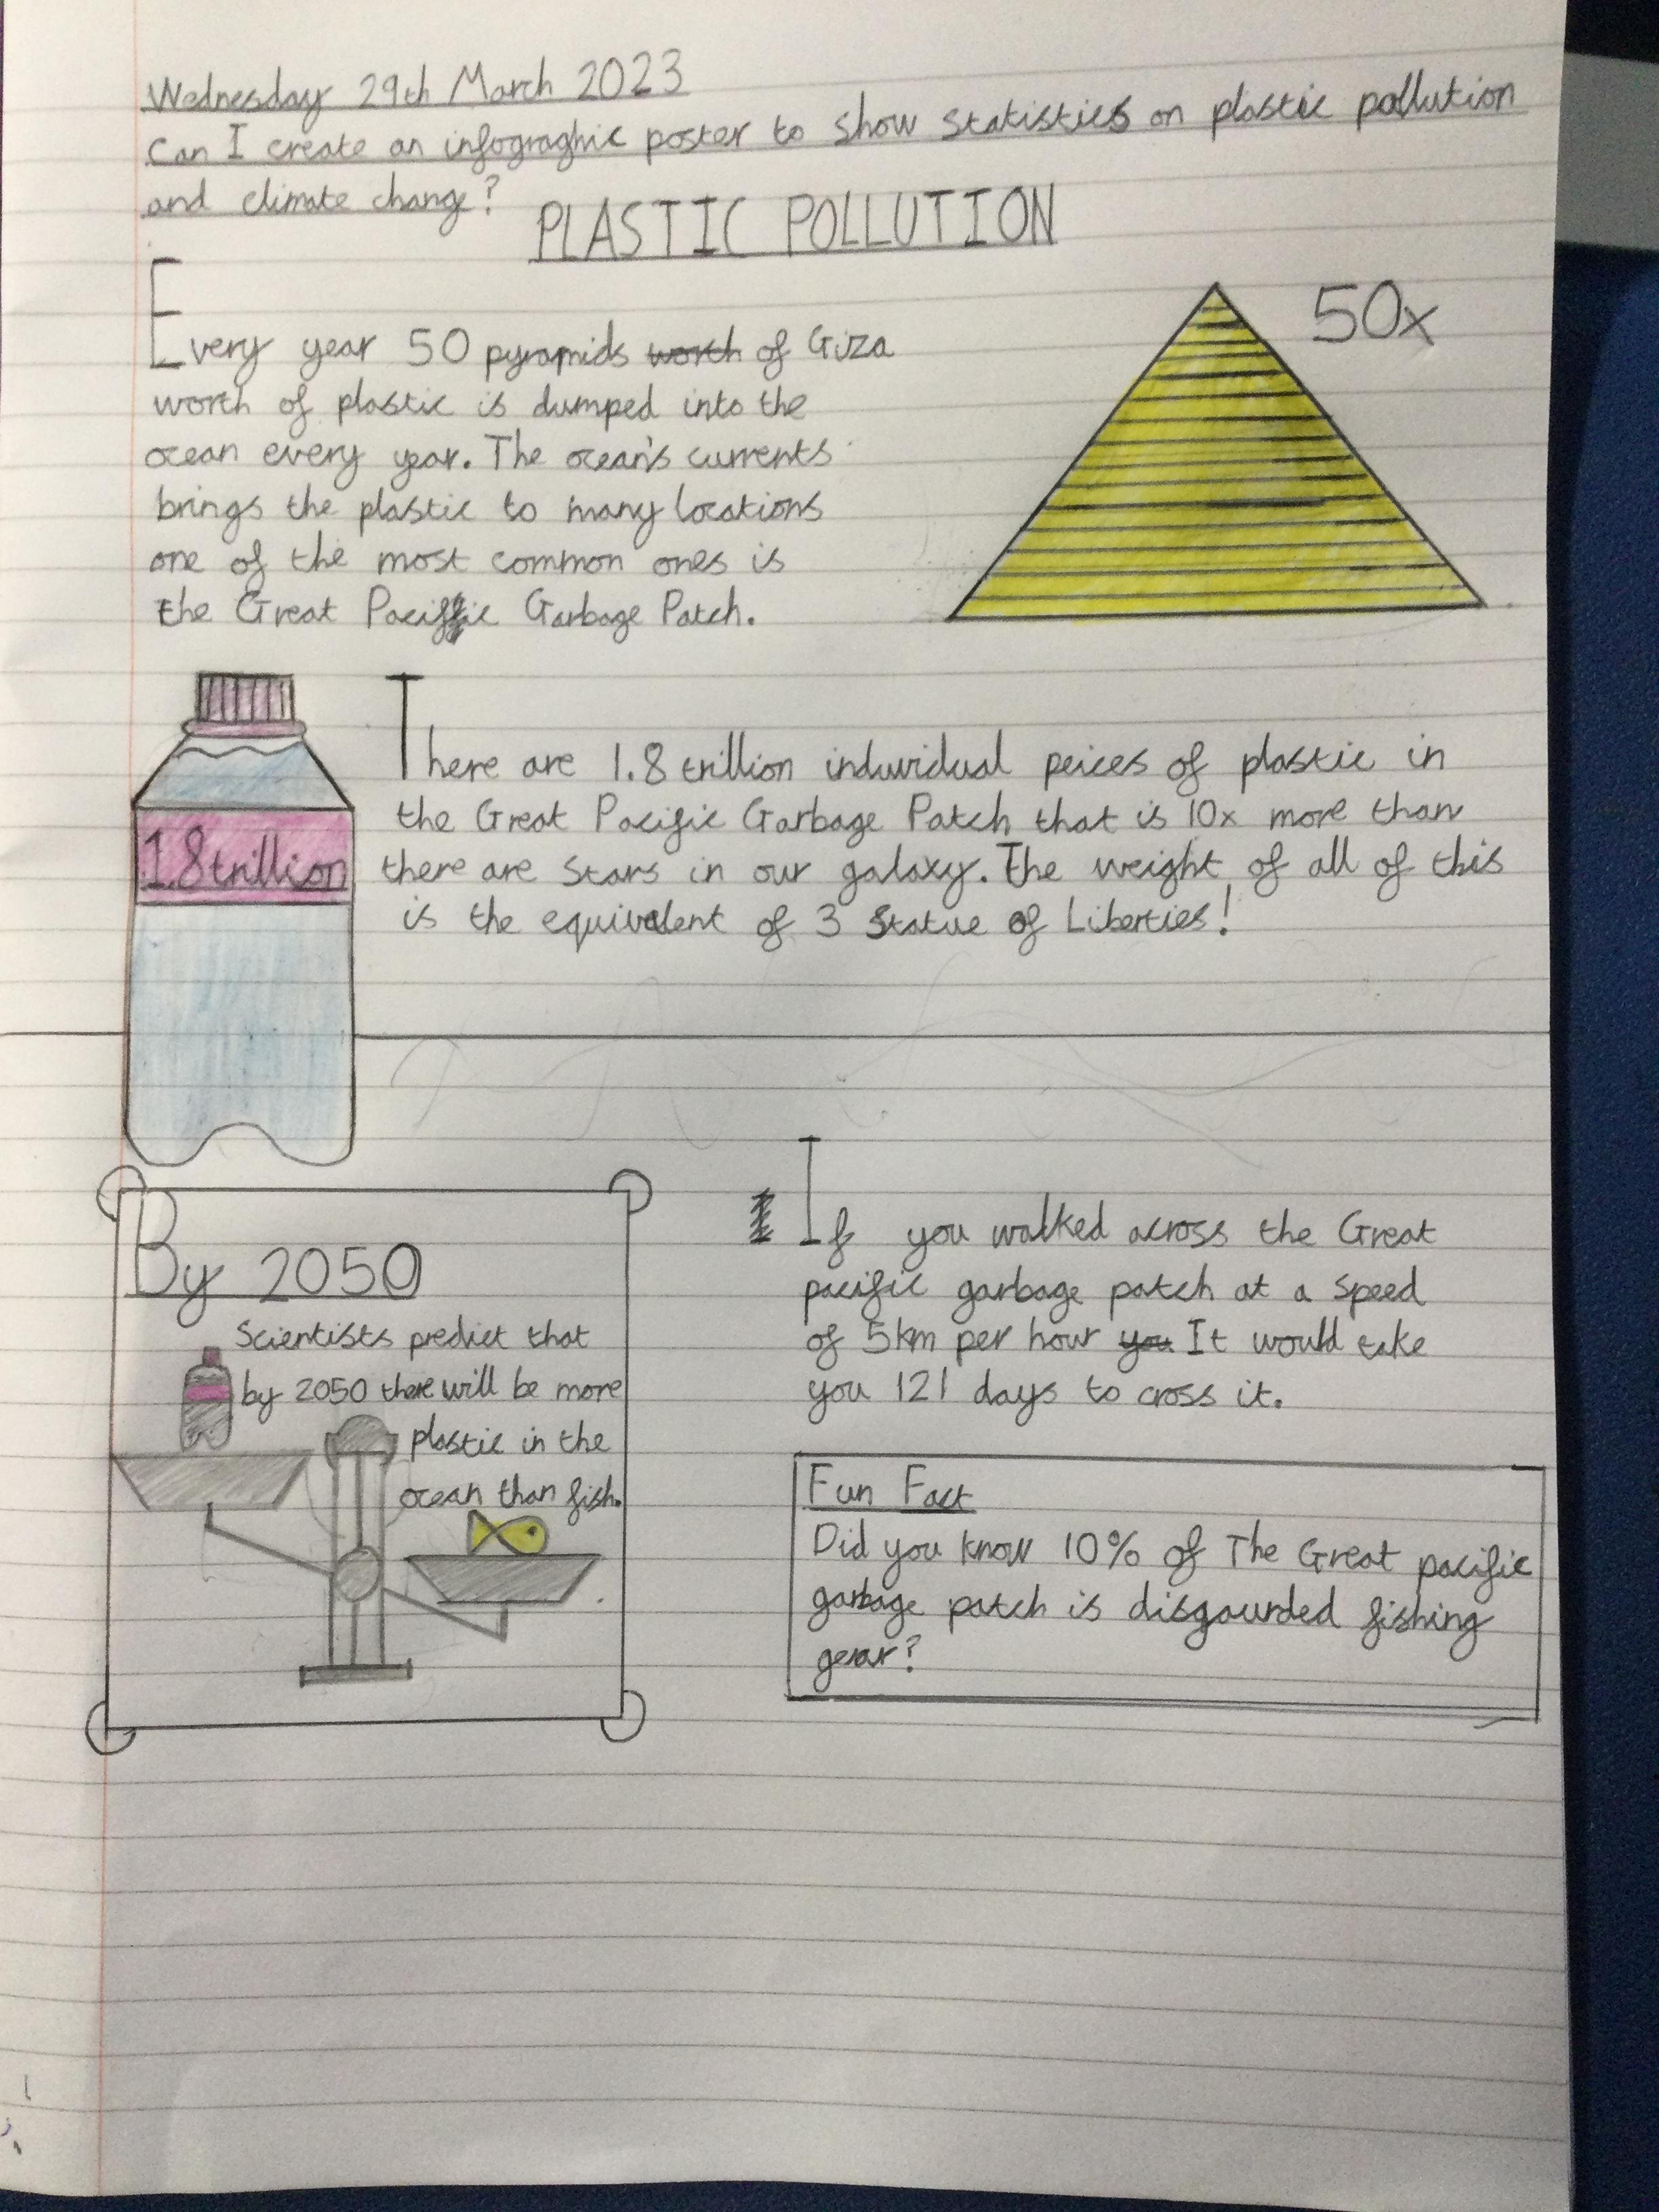 Wednesday 29th March 2023
Can I create an infograghic poster to show statistics on plastic pollution
and climate change?
PLASTIC POLLUTION
Every year 50 pyramids worth of Giza
worth of plastic is dumped into the
ocean every year. The ocean's currents
brings the plastic to many locations
one of the most common ones is
the Great Pacific Garbage Patch.
50x
There are 1.8 trillion induvidual peices of plastic in
the Great Pacific Garbage Patch that is 10x more than
there are stars in our galaxy. The weight of all of this
is the equivalent of 3 Statue of Liberties!
1.8 trillion
By 2050
Scientists predict that
by 2050 there will be more
plastic in the
ocean than fish.
If you walked across the Great
pacific garbage patch at a speed
of 5km per hour you It would take
you 121 days to cross it.
Fun Fact
Did you know 10% of The Great pacific
garbage patch is disgaurded fishing
gear?